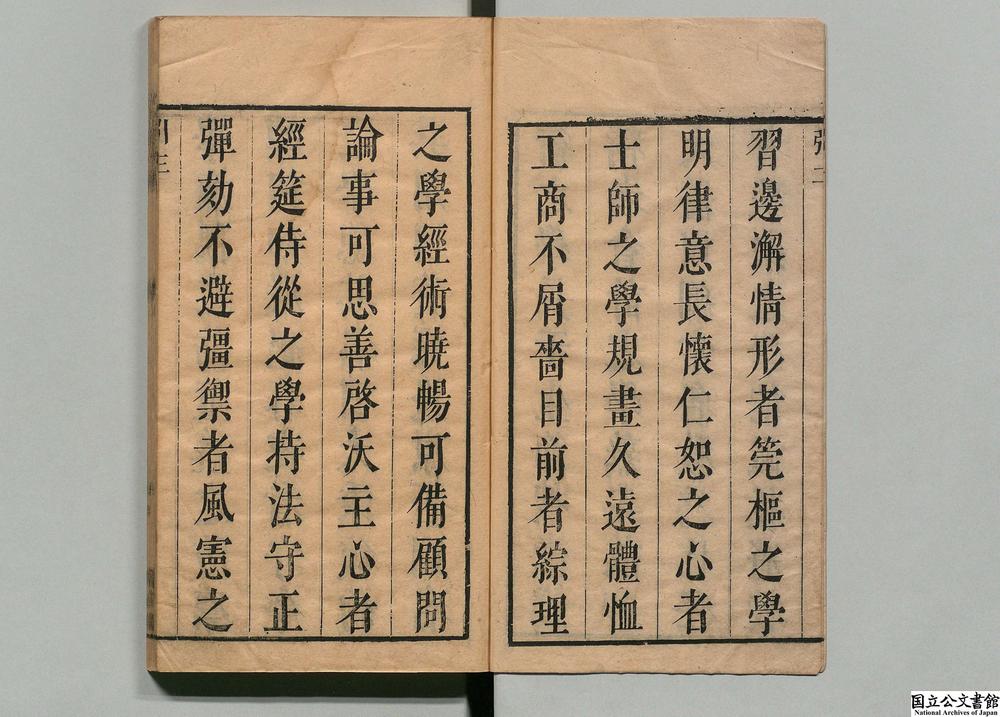 習邊澥情形者筦樞之學
明律意長懷仁恕之心者
士師之學規畫久遠體恤
工商不屑嗇目前者綜理
之學經術曉暢可備顧問
論事可思善啓沃主心者
經筵侍從之學持法守正
彈劾不避彊禦者風憲之
引三
国立公文書館
National Archives of Japan